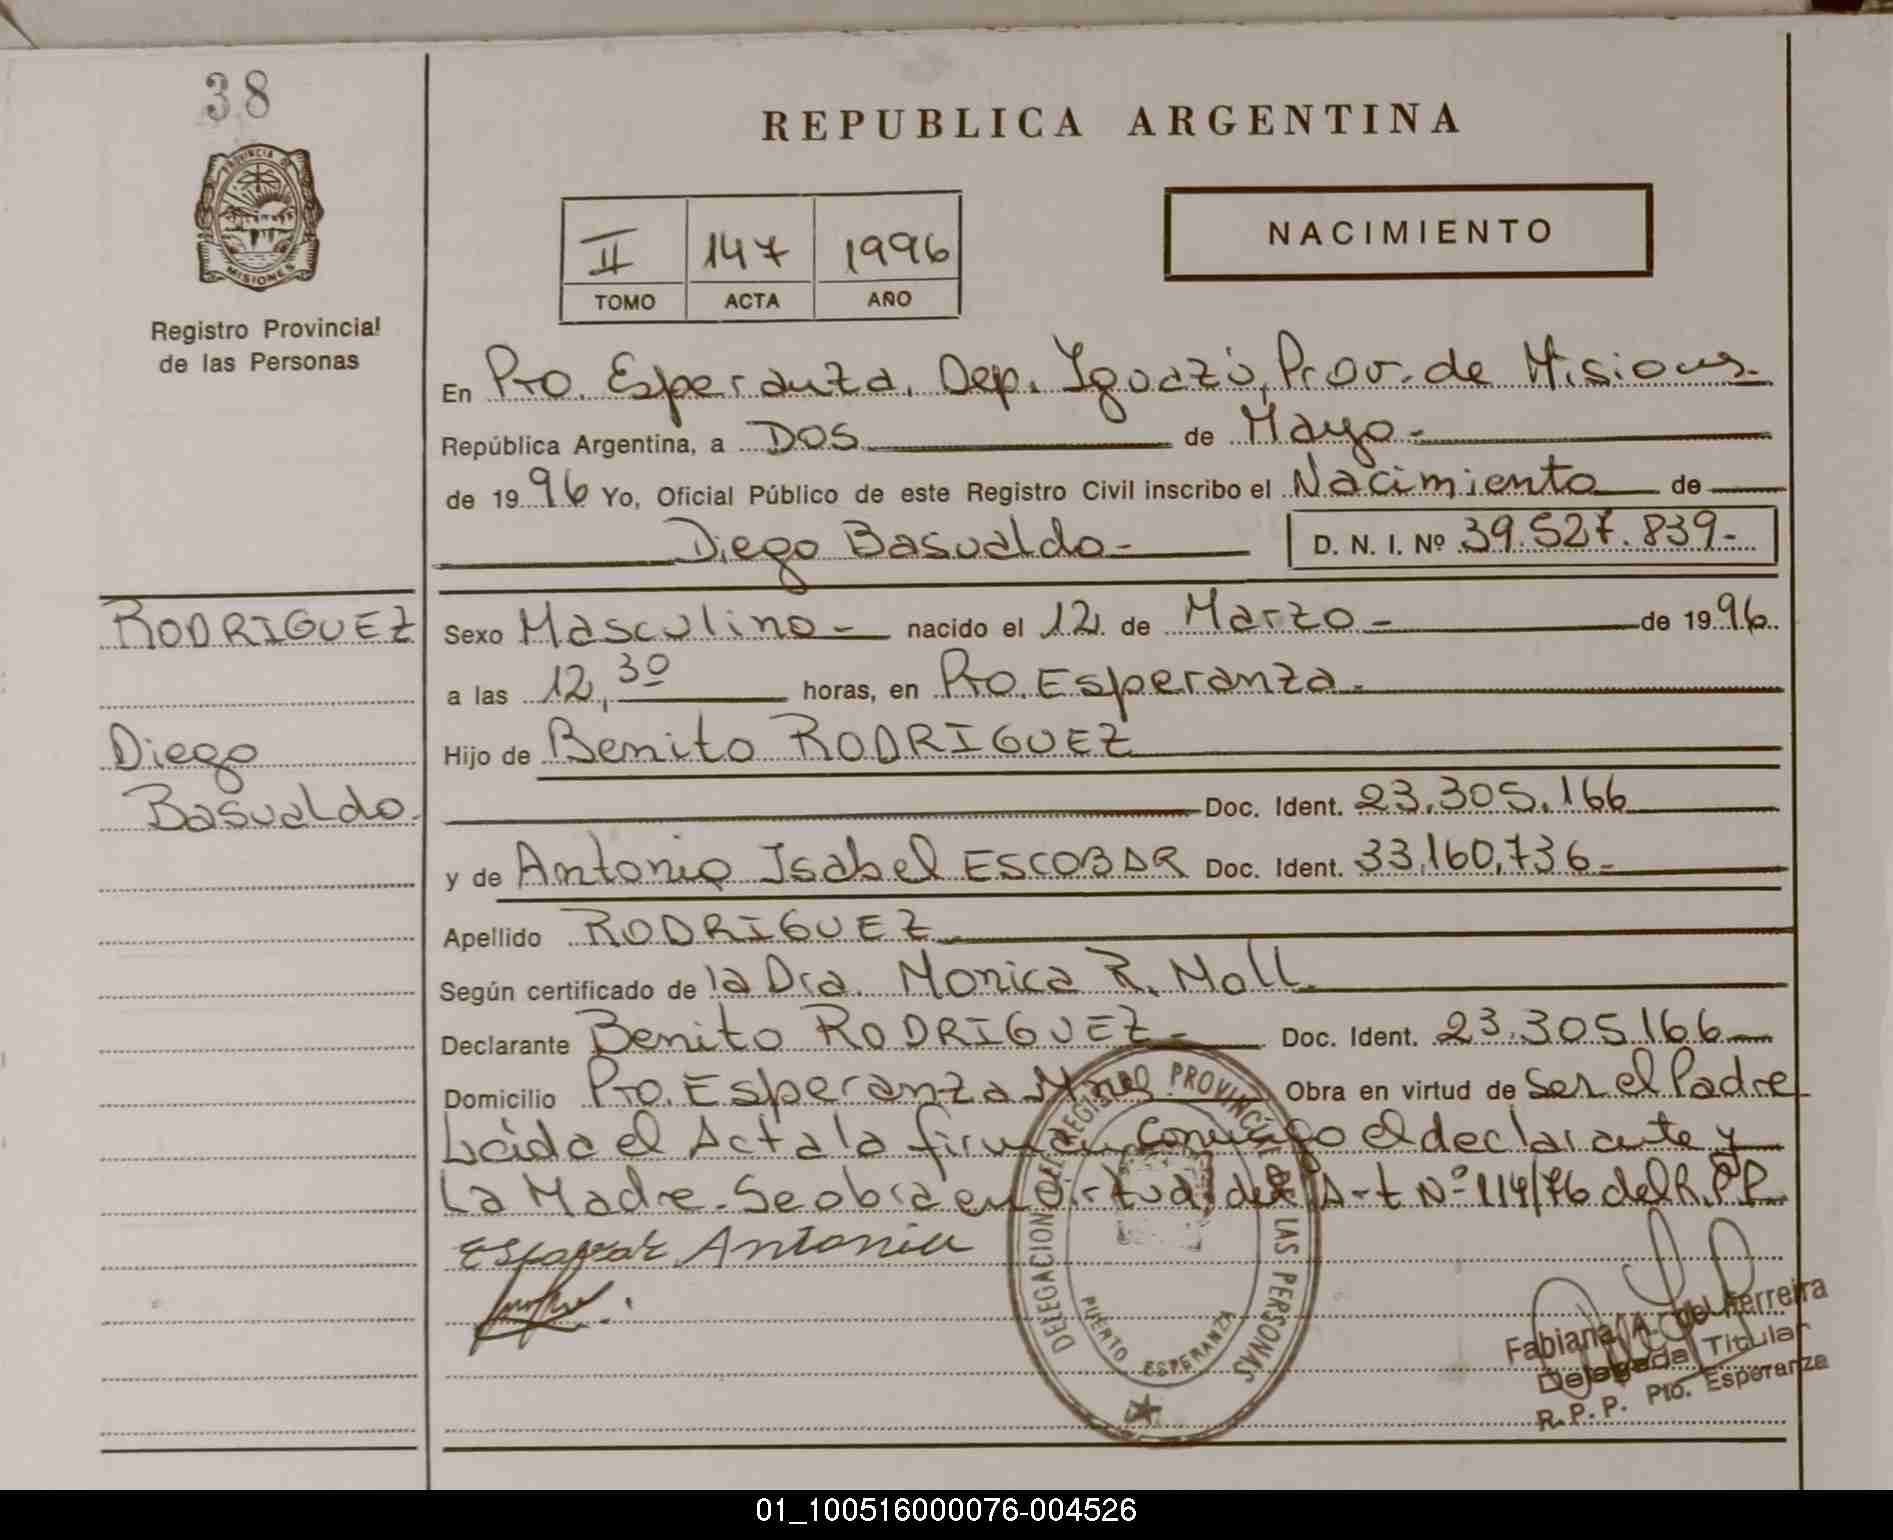 38
PROVINCIA DE
MISIONES
Registro Provincial
de las Personas
REPUBLICA ARGENTINA
II 147 1996
TOMO ACTA AÑO
NACIMIENTO
En Pto. Esperanza, Dep. Iguazú, Prov. de Misiones-
República Argentina, a DOS de Mayo-
de 1996 Yo, Oficial Público de este Registro Civil inscribo el Nacimiento de
Diego Basualdo- D. N. I. Nº 39.527.839-
RODRIGUEZ
Diego
Basualdo-
Sexo Masculino- nacido el 12 de Marzo- de 1996
a las 12,30 horas, en Pto. Esperanza-
Hijo de Benito RODRIGUEZ
Doc. Ident. 23.305.166
y de Antonia Isabel ESCOBAR Doc. Ident. 33.160.736-
Apellido RODRIGUEZ
Según certificado de la Dra. Monica R. Moll
Declarante Benito RODRIGUEZ- Doc. Ident. 23.305.166
Domicilio Pto. Esperanza Mnes Obra en virtud de Ser el Padre
Leida el Acta la firman conmigo el declarante y
La Madre. Se obra en virtud del Art Nº 114/76 del R.P.P.
Escobar Antonia
DELEGACION DEL REGISTRO PROVINCIAL DE LAS PERSONAS
PUERTO ESPERANZA
Fabiana A. Ferreira
Delegada Titular
R.P.P. Pto. Esperanza
01_100516000076-004526